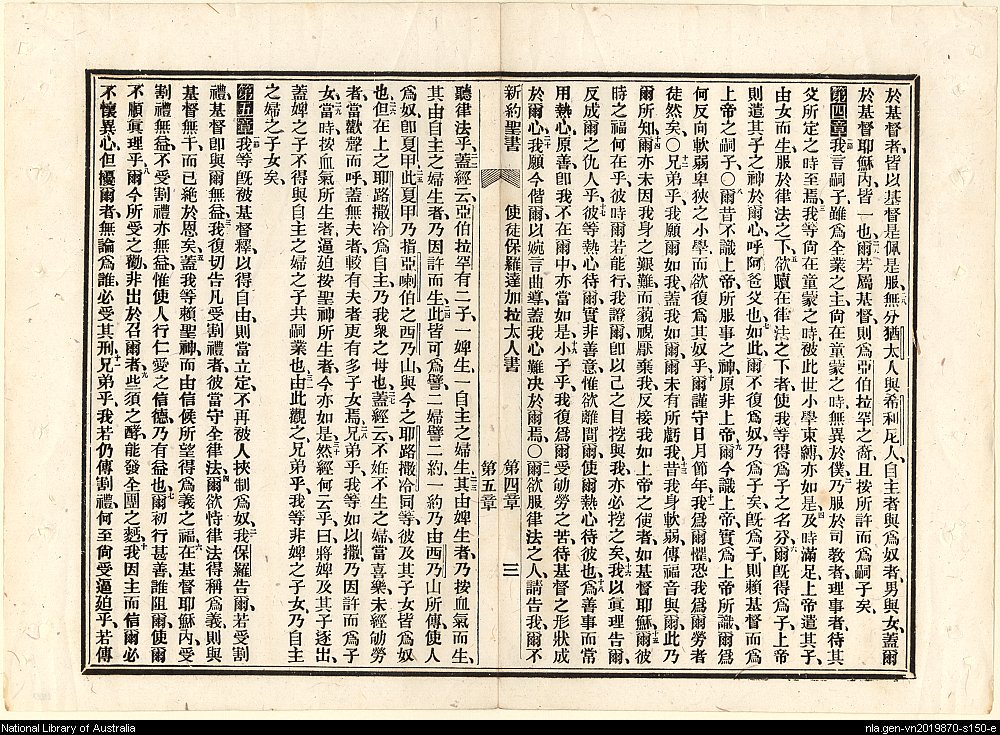 於基督者、皆以基督是佩是服、無分猶太人與希利尼人、自主者與爲奴者、男與女、蓋爾
於基督耶穌內、皆一也、爾若屬基督、則爲亞伯拉罕之裔、且按所許而爲嗣子矣、
第四章 一節 我言嗣子雖爲全業之主、尙在童蒙之時、無異於僕、乃服於司敎者、理事者、待其
父所定之時至焉、我等尙在童蒙之時、被此世小學束縛、亦如是、及時滿足、上帝遣其子、
由女而生、服於律法之下、欲贖在律法之下者、使我等得爲子之名分、爾旣得爲子、上帝
則遣其子之神於爾心、呼阿爸父也、如此、爾不復爲奴、乃爲子矣、旣爲子、則賴基督而爲
上帝之嗣子、○爾昔不識上帝、所服事之神、原非上帝、爾今識上帝、實爲上帝所識、爾爲
何反向軟弱卑狹之小學、而欲復爲其奴乎、爾謹守日月節年、我爲爾懼、恐我爲爾勞者
徒然矣、○兄弟乎、我願爾如我、蓋我如爾、爾未有所虧我、昔我身軟弱、傳福音與爾、此乃
爾所知、爾亦未因我身之艱難而藐視厭棄我、反接我如上帝之使者、如基督耶穌、爾彼
時之福何在乎、彼時爾若能行、我證爾卽以己之目挖與我、亦必挖之矣、我以眞理告爾、
反成爾之仇人乎、彼等熱心待爾、實非善意、惟欲離間爾、使爾熱心待彼也、爲善事而常
用熱心、原善、卽我不在爾中、亦當如是、小子乎、我復爲爾受劬勞之苦、待基督之形狀成
於爾心、我願今偕爾、以婉言曲導、蓋我心難决於爾焉、○爾欲服律法之人、請告我、爾不
新約聖書 使徒保羅達加拉太人書 第四章 第五章 三
聽律法乎、蓋經云、亞伯拉罕有二子、一婢生、一自主之婦生、其由婢生者、乃按血氣而生、
其由自主之婦生者、乃因許而生、此皆可爲譬、二婦譬二約、一約乃由西乃山所傳、使人
爲奴、卽夏甲、此夏甲、乃指亞喇伯之西乃山、與今之耶路撒冷同等、彼及其子女皆爲奴
也、但在上之耶路撒冷爲自主、乃我衆之母也、蓋經云、不姙不生之婦、當喜樂、未經劬勞
者、當歡聲而呼、蓋無夫者、較有夫者更有多子女焉、兄弟乎、我等如以撒、乃因許而爲子
女、當時按血氣所生者、逼廹按聖神所生者、今亦如是、然經何云乎、曰將婢及其子逐出、
蓋婢之子不得與自主之婦之子共嗣業也、由此觀之、兄弟乎、我等非婢之子女、乃自主
之婦之子女矣、
第五章 一節 我等旣被基督釋、以得自由、則當立定、不再被人挾制爲奴、我保羅告爾、若受割
禮、基督卽與爾無益、我復切告凡受割禮者、彼當守全律法、爾欲恃律法得稱爲義、則與
基督無干、而已絕於恩矣、蓋我等賴聖神而由信候所望得爲義之福、在基督耶穌內、受
割禮無益、不受割禮亦無益、惟使人行仁愛之信德、乃有益也、爾初行甚善、誰阻爾使爾
不順眞理乎、爾今所受之勸、非出於召爾者、些須之酵、能發全團之麪、我因主而信爾必
不懷異心、但擾爾者、無論爲誰、必受其刑、兄弟乎、我若仍傳割禮、何至尙受逼廹乎、若傳
National Library of Australia
nla.gen-vn2019870-s150-e